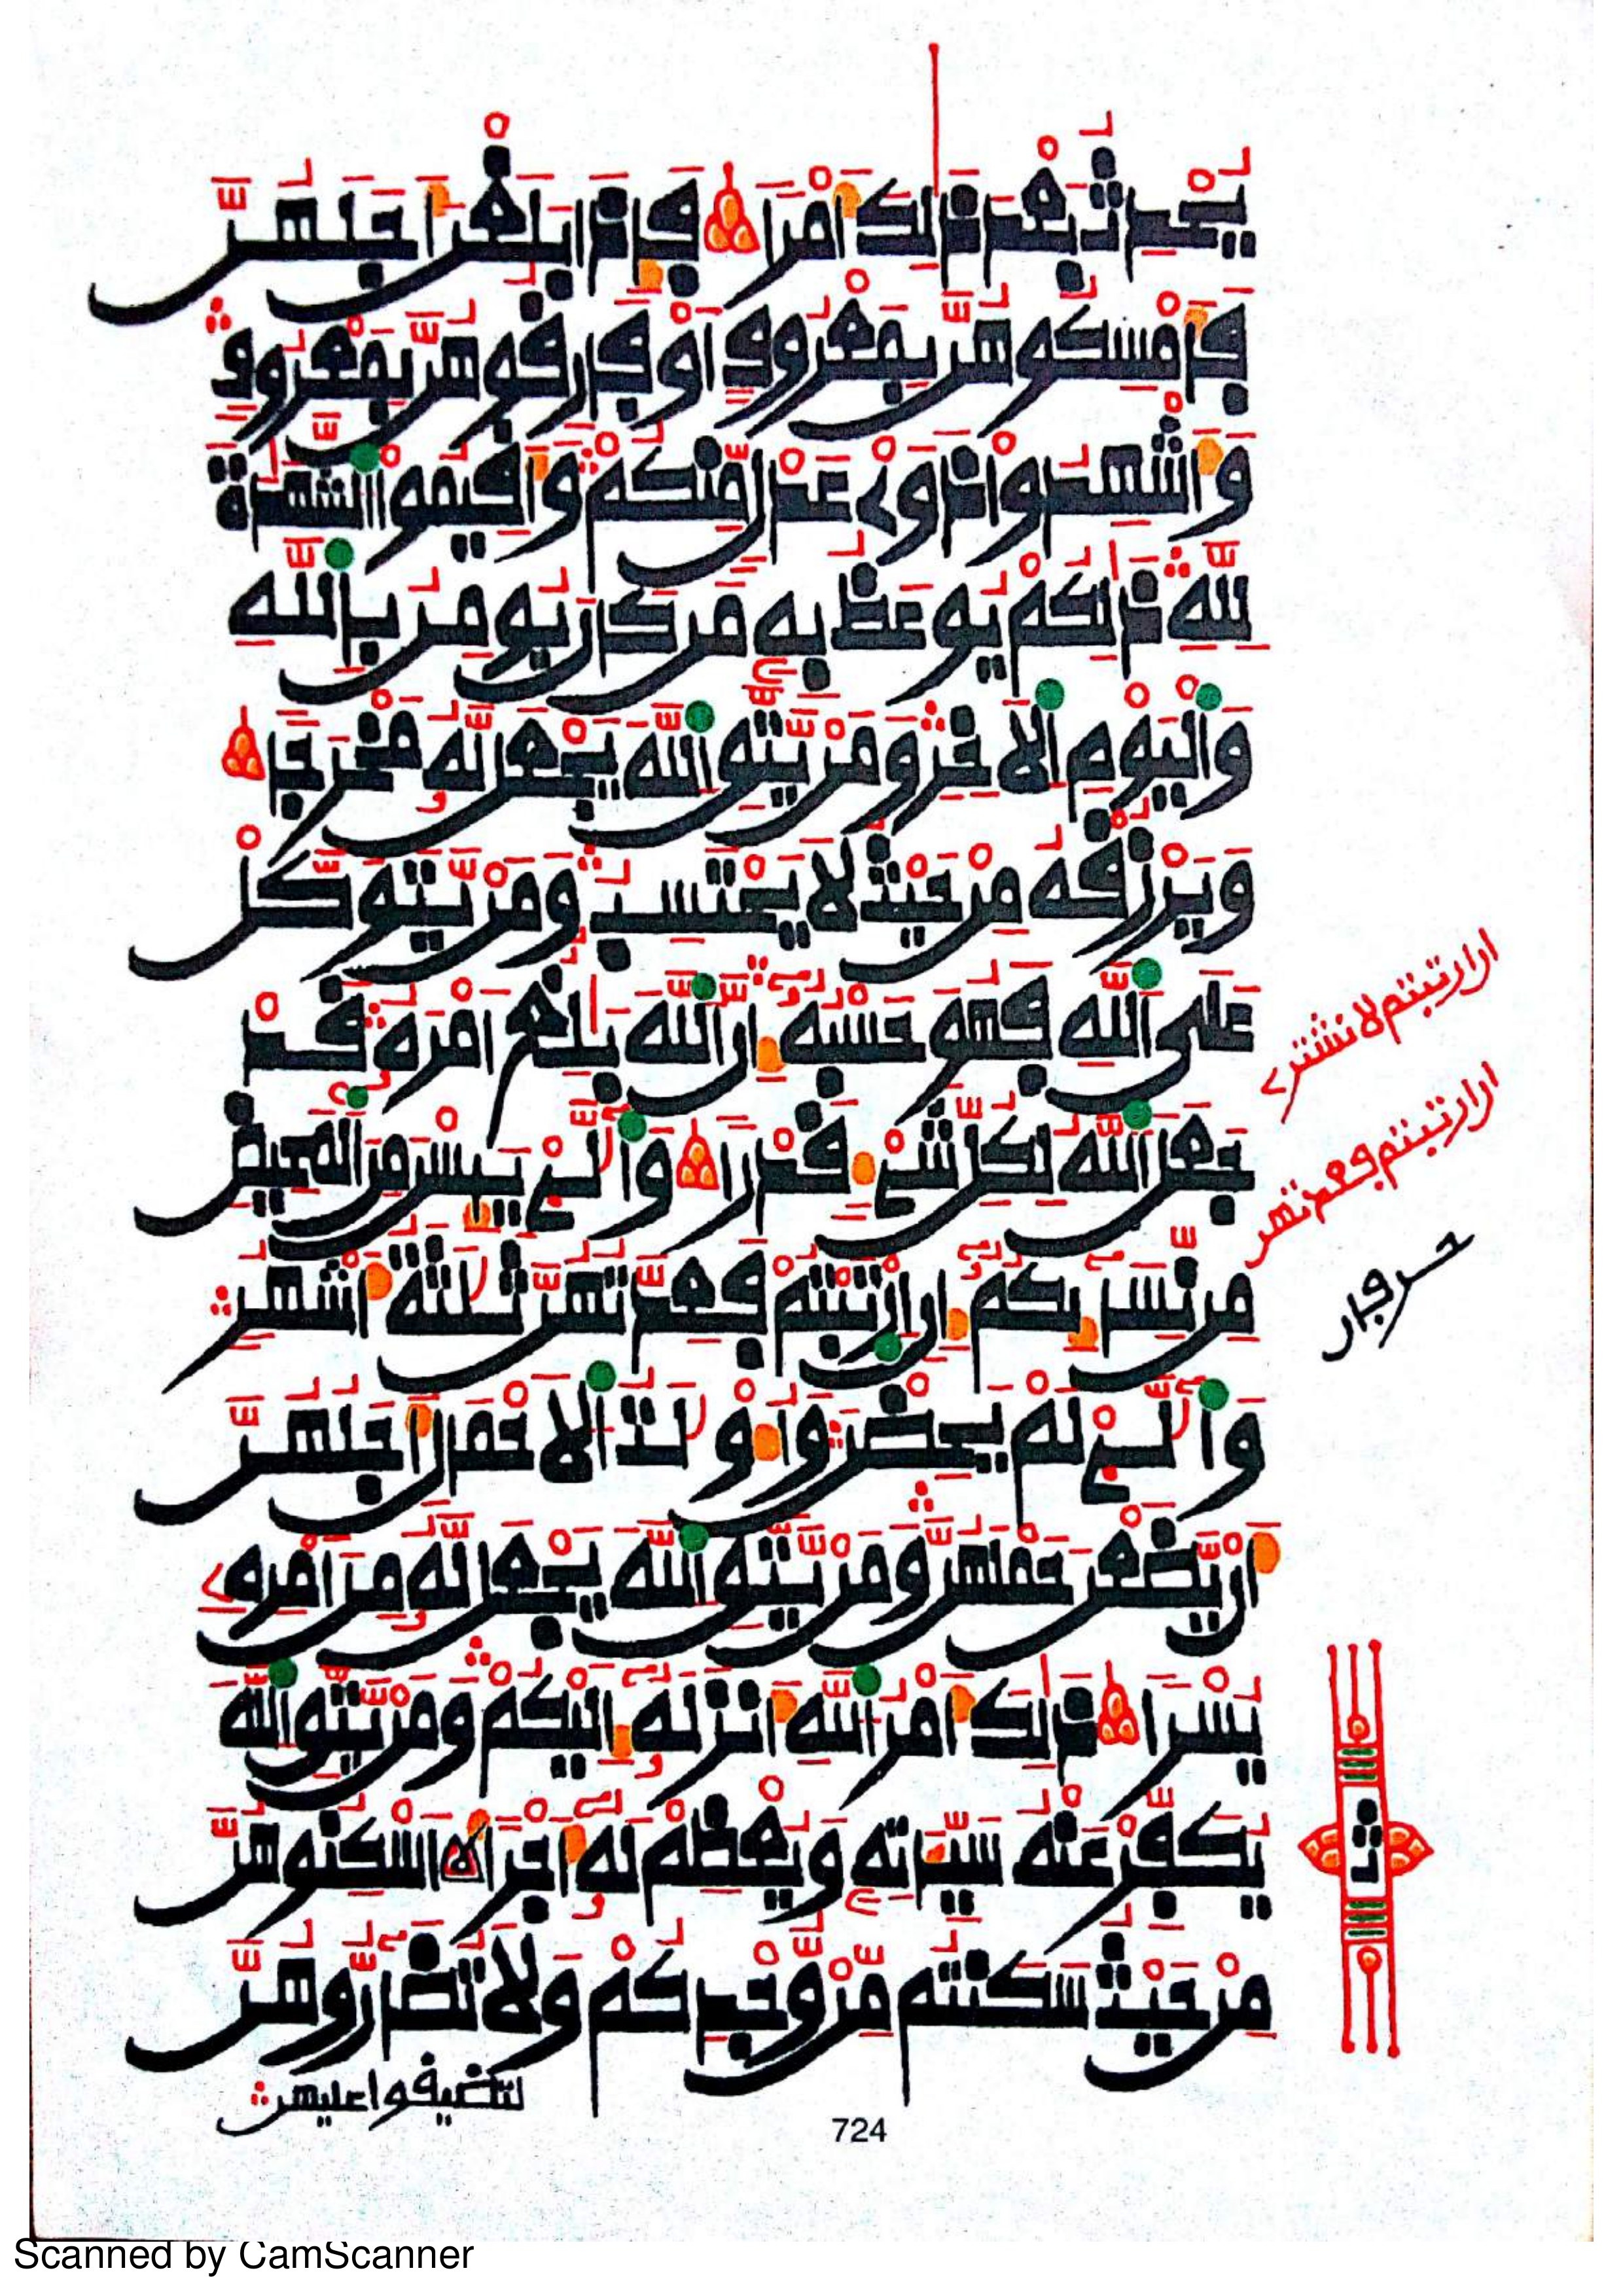 يُحْدِثُ بَعْدَ ذَٰلِكَ أَمْرًا فَإِذَا بَلَغْنَ أَجَلَهُنَّ
فَأَمْسِكُوهُنَّ بِمَعْرُوفٍ أَوْ فَارِقُوهُنَّ بِمَعْرُوفٍ
وَأَشْهِدُوا ذَوَىْ عَدْلٍ مِّنكُمْ وَأَقِيمُوا الشَّهَٰدَةَ
لِلَّهِ ذَٰلِكُمْ يُوعَظُ بِهِ مَن كَانَ يُومِنُ بِاللَّهِ
وَالْيَوْمِ الَاخِرِ وَمَنْ يَّتَّقِ اللَّهَ يَجْعَل لَّهُ مَخْرَجًا
وَيَرْزُقْهُ مِنْ حَيْثُ لَا يَحْتَسِبُ وَمَنْ يَّتَوَكَّلْ
عَلَى اللَّهِ فَهُوَ حَسْبُهُ إِنَّ اللَّهَ بَٰلِغٌ أَمْرَهُ قَدْ
جَعَلَ اللَّهُ لِكُلِّ شَيْءٍ قَدْرًا وَالَّٰٓـِٔے يَئِسْنَ مِنَ الْمَحِيضِ
مِن نِّسَآئِكُمْ إِنِ ارْتَبْتُمْ فَعِدَّتُهُنَّ ثَلَٰثَةُ أَشْهُرٍ
وَالَّٰٓـِٔے لَمْ يَحِضْنَ وَأُوْلَٰتُ الَاحْمَالِ أَجَلُهُنَّ
أَنْ يَّضَعْنَ حَمْلَهُنَّ وَمَنْ يَّتَّقِ اللَّهَ يَجْعَل لَّهُ مِنَ امْرِهِ
يُسْرًا ذَٰلِكَ أَمْرُ اللَّهِ أَنزَلَهُ إِلَيْكُمْ وَمَنْ يَّتَّقِ اللَّهَ
يُكَفِّرْ عَنْهُ سَيِّـَٔاتِهِ وَيُعْظِمْ لَهُ أَجْرًا اَسْكِنُوهُنَّ
مِنْ حَيْثُ سَكَنتُم مِّنْ وُّجْدِكُمْ وَلَا تُضَآرُّوهُنَّ
لتضيقوا عليهن
ان ارتبتم لا نشتري
ان ارتبتم فعدتهن
ثمن
724
Scanned by CamScanner